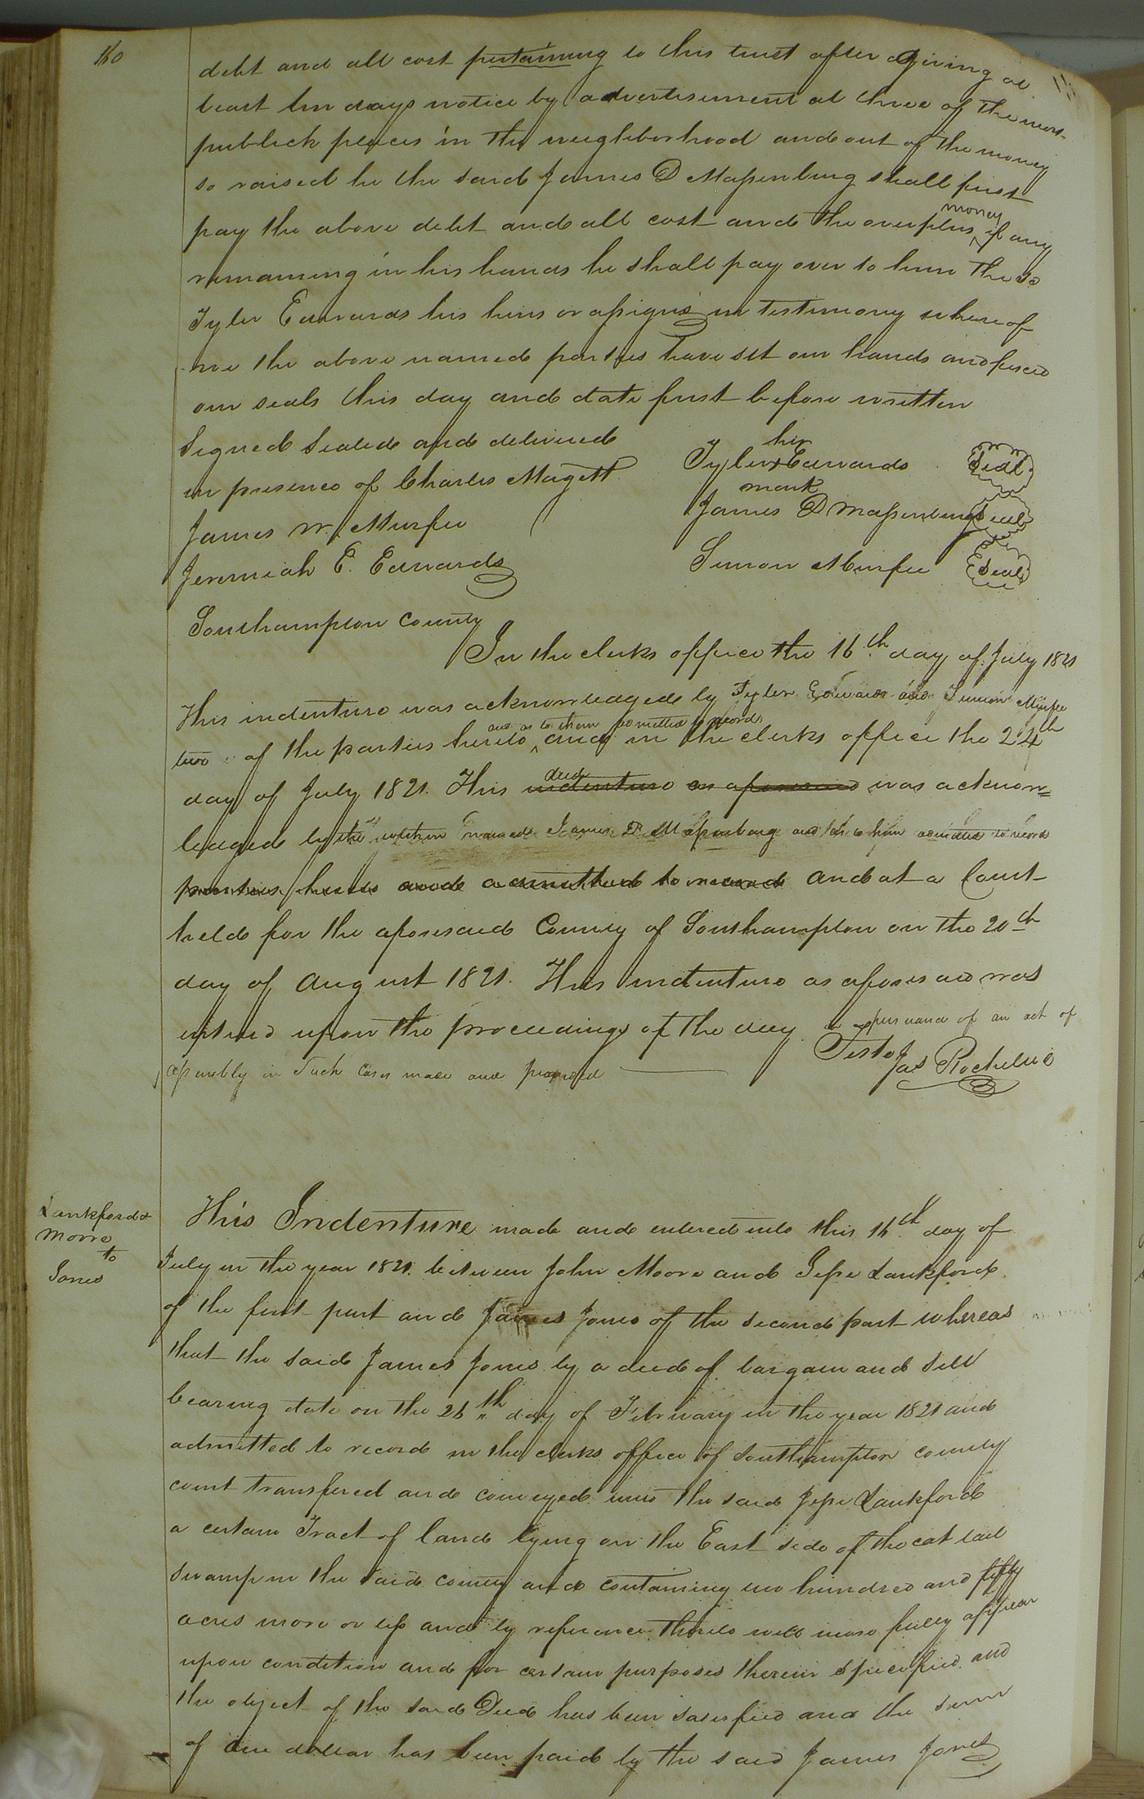 160
debt and all cost pertaining to this trust after giving at
least ten days notice by advertisement at three of the most
publick places in the neighborhood and out of the money
so raised he the said James D Massenburg shall first
pay the above debt and all cost and the overplus money if any
remaining in his hands he shall pay over to him the sd
Tyler Edwards his heirs or assigns in testimony whereof
we the above named parties have set our hands and fixed
our seals this day and date first before written
Signed Sealed and delivered
in presence of Charles Magett
James W. Murfee
Jeremiah E. Edwards
his
Tyler x Edwards Seal
mark
James D Massenburg Seal
Simon Murfee Seal
Southampton County
In the clerks office the 16th day of July 1821
This indenture was acknowledged by Tyler Edwards and Simon Murfee
two of the parties hereto and as to them admitted to record and in the clerks office the 24th
day of July 1821. This indenture deed as aforesaid was acknow=
ledged by the within named James D Massenburg and as to him admitted to record
parties hereto and admitted to record and at a Court
held for the aforesaid County of Southampton on the 20th
day of August 1821. This indenture as aforesaid was
entered upon the proceedings of the day in pursuance of an act of
assembly in Such Cases made and provided
Teste Jas Rochelle
Lankford &
Moore
to
Jones
This Indenture made and entered into this 16th day of
July in the year 1821. between John Moore and Jesse Lankford
of the first part and James Jones of the second part whereas
that the said James Jones by a deed of bargain and sell
bearing date on the 26th day of February in the year 1821 and
admitted to record in the clerks office of Southampton county
court transfered and conveyed unto the said Jesse Lankford
a certain Tract of land lying on the East side of the cat tail
swamp in the said county and containing two hundred and fifty
acres more or less and by reference thereto will more fully appear
upon condition and for certain purposes therein specified and
the object of the said Deed has been satisfied and the sum
of one dollar has been paid by the said James Jones